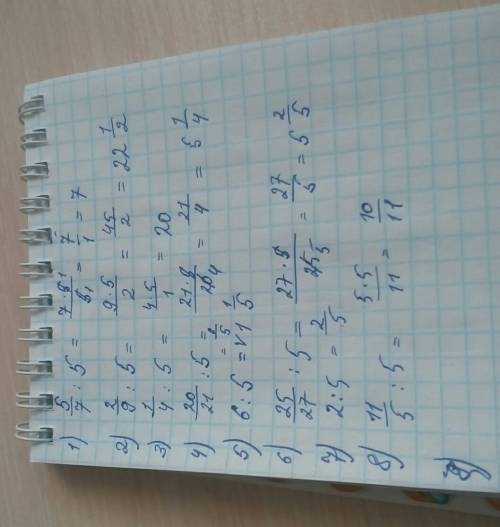 1) 5/7 : 5 = 7·5¹/5₁ = 7/1 = 7
2) 2/9 : 5 = 9·5/2 = 45/2 = 22 1/2
3) 1/4 : 5 = 4·5/1 = 20
4) 20/21 : 5 = 21·5/20 4 = 21/4 = 5 1/4
5) 6 : 5 = 6/5 = 1 1/5
6) 25/27 : 5 = 27·5/25 5 = 27/5 = 5 2/5
7) 2 : 5 = 2/5
8) 11/5 : 5 = 5·5/11 = 10/11
9)